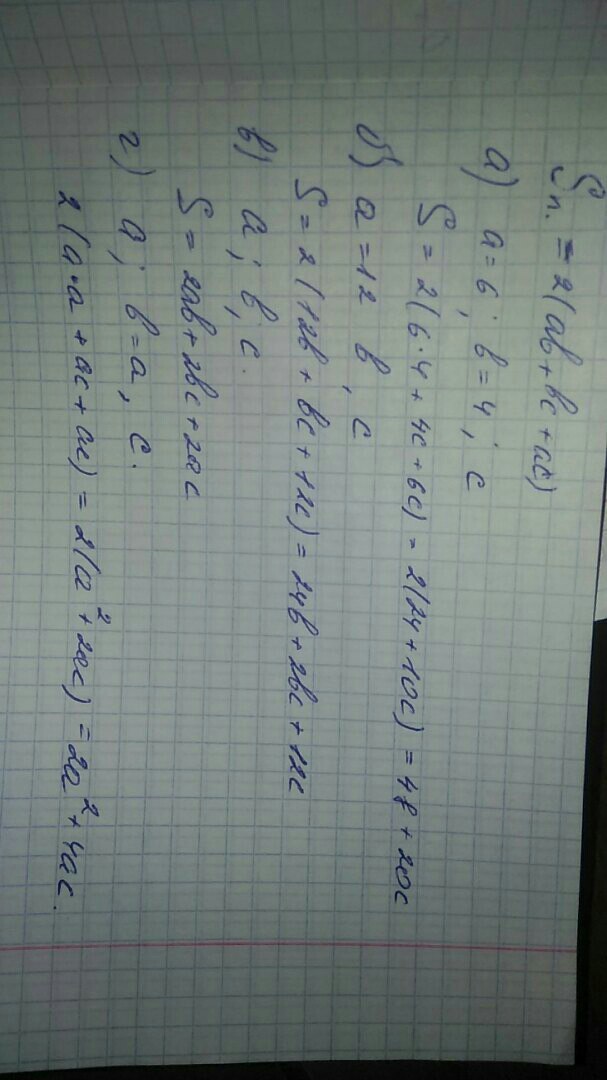 Sп. = 2(ab + bc + ac)
а) a = 6; b = 4; c
S = 2(6·4 + 4c + 6c) = 2(24 + 10c) = 48 + 20c
б) a = 12 b, c
S = 2(12b + bc + 12c) = 24b + 2bc + 12c
в) a; b; c.
S = 2ab + 2bc + 2ac
г) a; b = a, c.
2(a·a + ac + ac) = 2(a² + 2ac) = 2a² + 4ac.